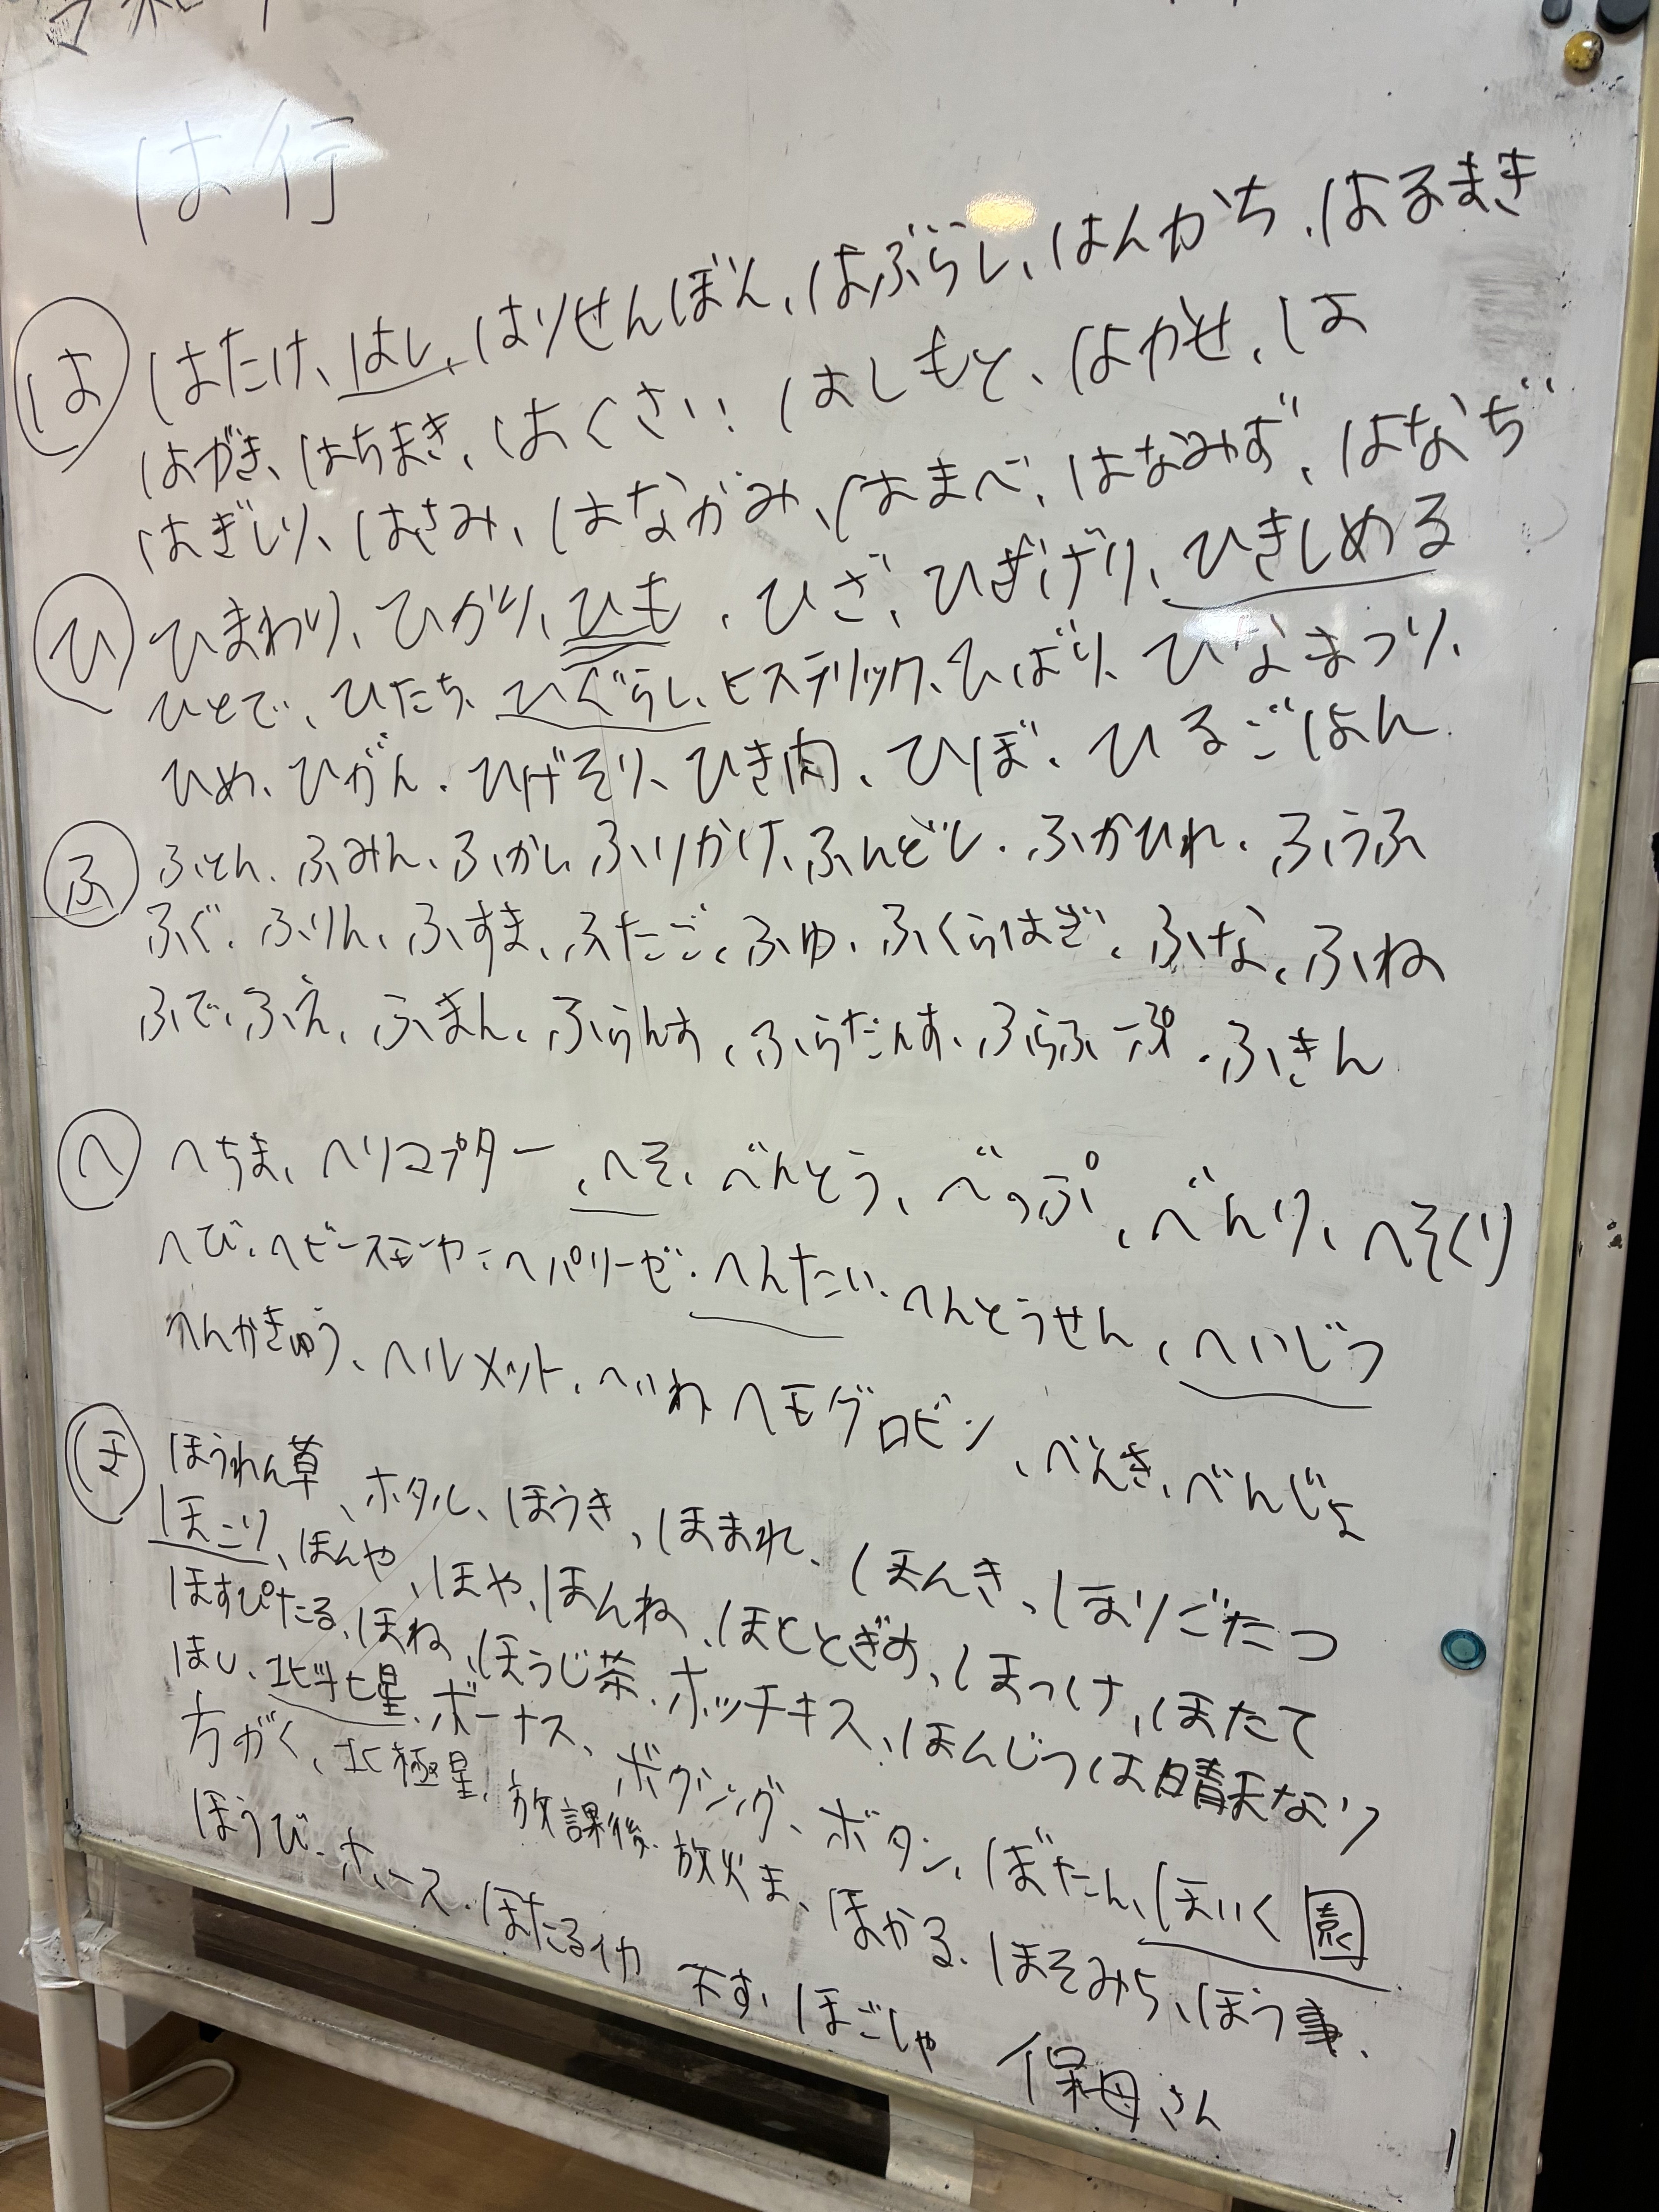 は行
は はたけ、はし、はりせんぼん、はぶらし、はんかち、はるまき
はがき、はちまき、はくさい、はしもと、はかせ、は
はぎしり、はさみ、はながみ、はまべ、はなみず、はなぢ
ひ ひまわり、ひかり、ひも、ひざ、ひざげり、ひきしめる
ひとで、ひたち、ひぐらし、ヒステリック、ひばり、ひなまつり、
ひめ、ひがん、ひげそり、ひき肉、ひぼ、ひるごはん
ふ ふとん、ふみん、ふかし、ふりかけ、ふんどし、ふかひれ、ふうふ
ふぐ、ふりん、ふすま、ふたご、ふゆ、ふくらはぎ、ふな、ふね
ふで、ふえ、ふまん、ふらんす、ふらだんす、ふらふーぷ、ふきん
へ へちま、ヘリコプター、へそ、べんとう、べっぷ、べんり、へそくり
へび、ヘビースモーカー、ヘパリーゼ、へんたい、へんとうせん、へいじつ
へんかきゅう、ヘルメット、へいわ、ヘモグロビン、べんき、べんじょ
ほ ほうれん草、ホタル、ほうき、ほまれ、ほんき、ほりごたつ
ほこり、ほんや、ほや、ほんね、ほととぎす、ほっけ、ほたて
ほすぴたる、ほね、ほうじ茶、ホッチキス、ほんじつは晴天なり
ほし、北斗七星、ボーナス、ボクシング、ボタン、ぼたん、ほいく園
方がく、北極星、放課後、放火ま、ほかる、ほそみち、ほう事、
ほうび、ホース、ほたるイカ ほす、ほごしゃ 保母さん